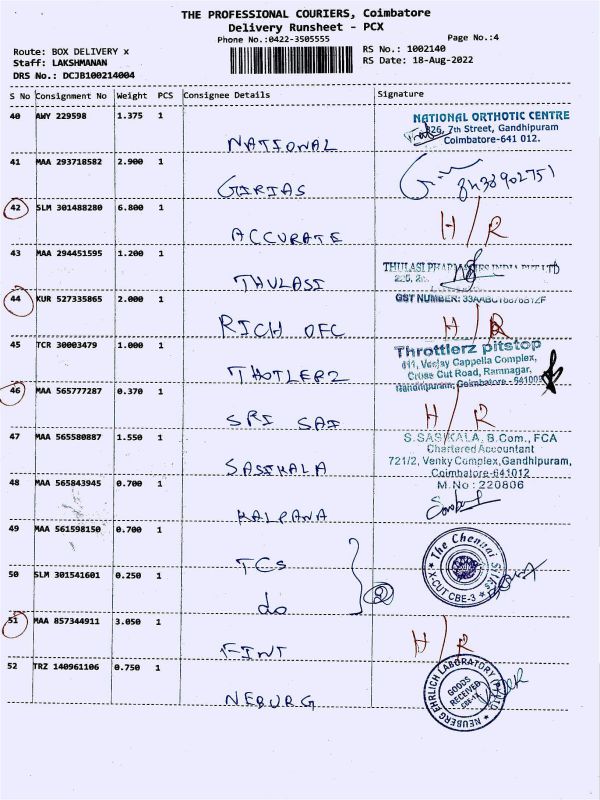 THE PROFESSIONAL COURIERS, Coimbatore
Delivery Runsheet - PCX
Phone No.:0422-3505555
Page No.:4
Route: BOX DELIVERY x
RS No.: 1002140
Staff: LAKSHMANAN
RS Date: 18-Aug-2022
DRS No.: DCJB100214004
S No Consignment No Weight PCS Consignee Details Signature
40 AWY 229598 1.375 1
NATIONAL
NATIONAL ORTHOTIC CENTRE
326, 7th Street, Gandhipuram
Coimbatore-641 012.
41 MAA 293718582 2.900 1
GIRIAS
8438902751
42 SLM 301488280 6.800 1
ACCURATE
H/R
43 MAA 294451595 1.200 1
THULASI
THULASI PHARMACIES INDIA PVT LTD
44 KUR 527335865 2.000 1
RICH OFC
GST NUMBER:
H/R
45 TCR 30003479 1.000 1
THOTLERZ
Throttlerz pitstop
411, Veejay Cappella Complex,
Cross Cut Road, Ramnagar,
Gandhipuram, Coimbatore - 641009
46 MAA 565777287 0.370 1
SRI SAI
H/R
47 MAA 565580887 1.550 1
SASIKALA
S.SASIKALA, B.Com., FCA
Chartered Accountant
721/2, Venky Complex,Gandhipuram,
Coimbatore-641012
M.No : 220806
48 MAA 565843945 0.700 1
KALPANA
49 MAA 561598150 0.700 1
TCS
The Chennai Silks
X-CUT CBE-3
50 SLM 301541601 0.250 1
do
2
51 MAA 857344911 3.050 1
FINI
H/R
52 TRZ 140961106 0.750 1
NEBURG
NEUBERG EHRLICH LABORATORY (P) LTD
GOODS
RECEIVED